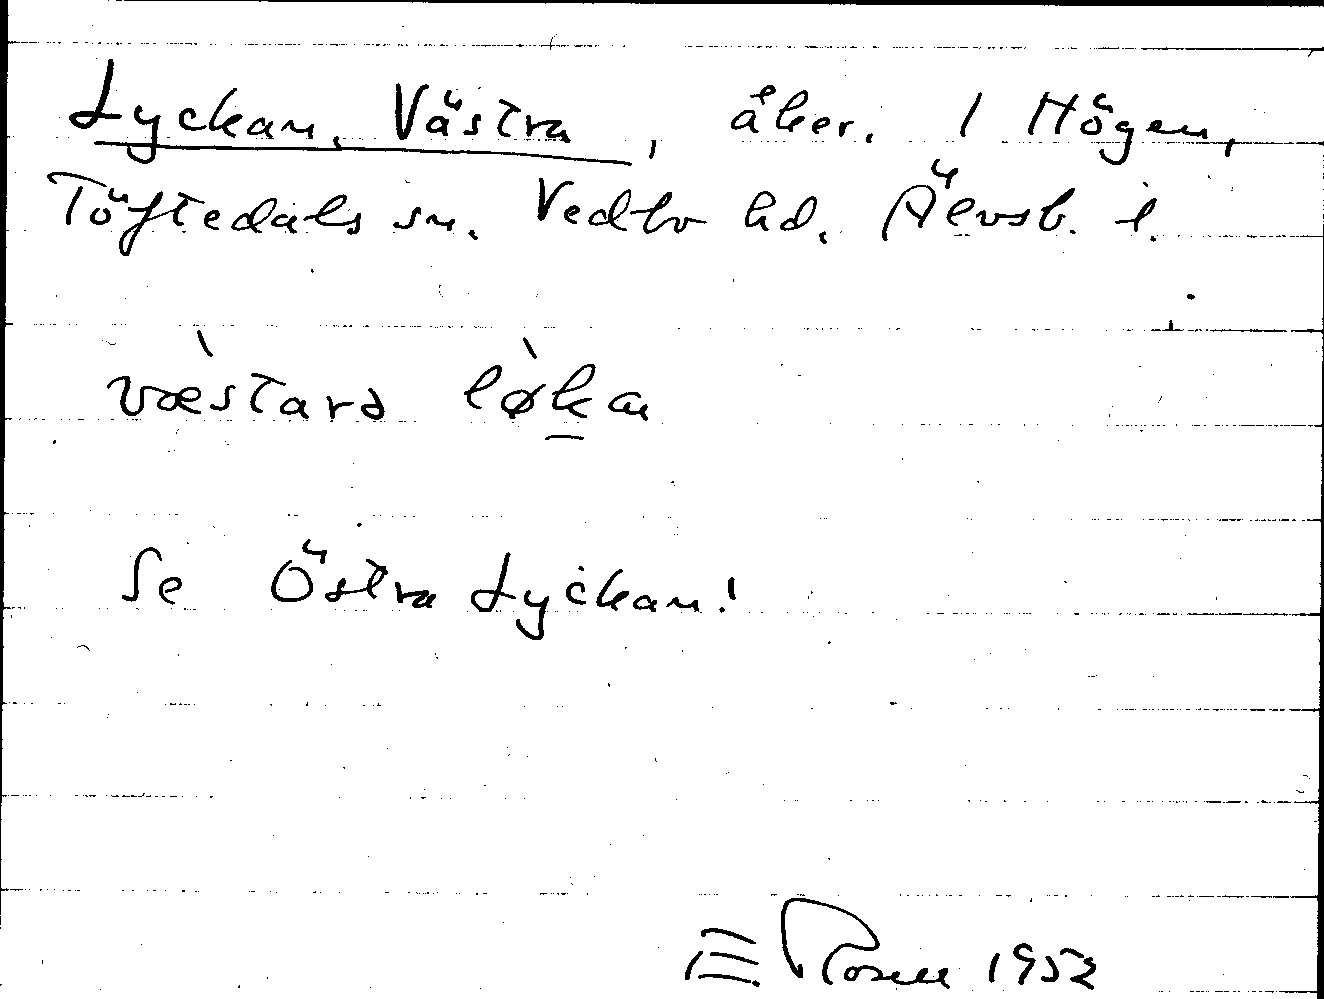 Lyckan, Västra, åker. / Högen,
Töftedals sn. Vedbo hd. Älvsb. l.
væ̀stara lø̀k̲an
Se Östra Lyckan!
E. Rosell 1952